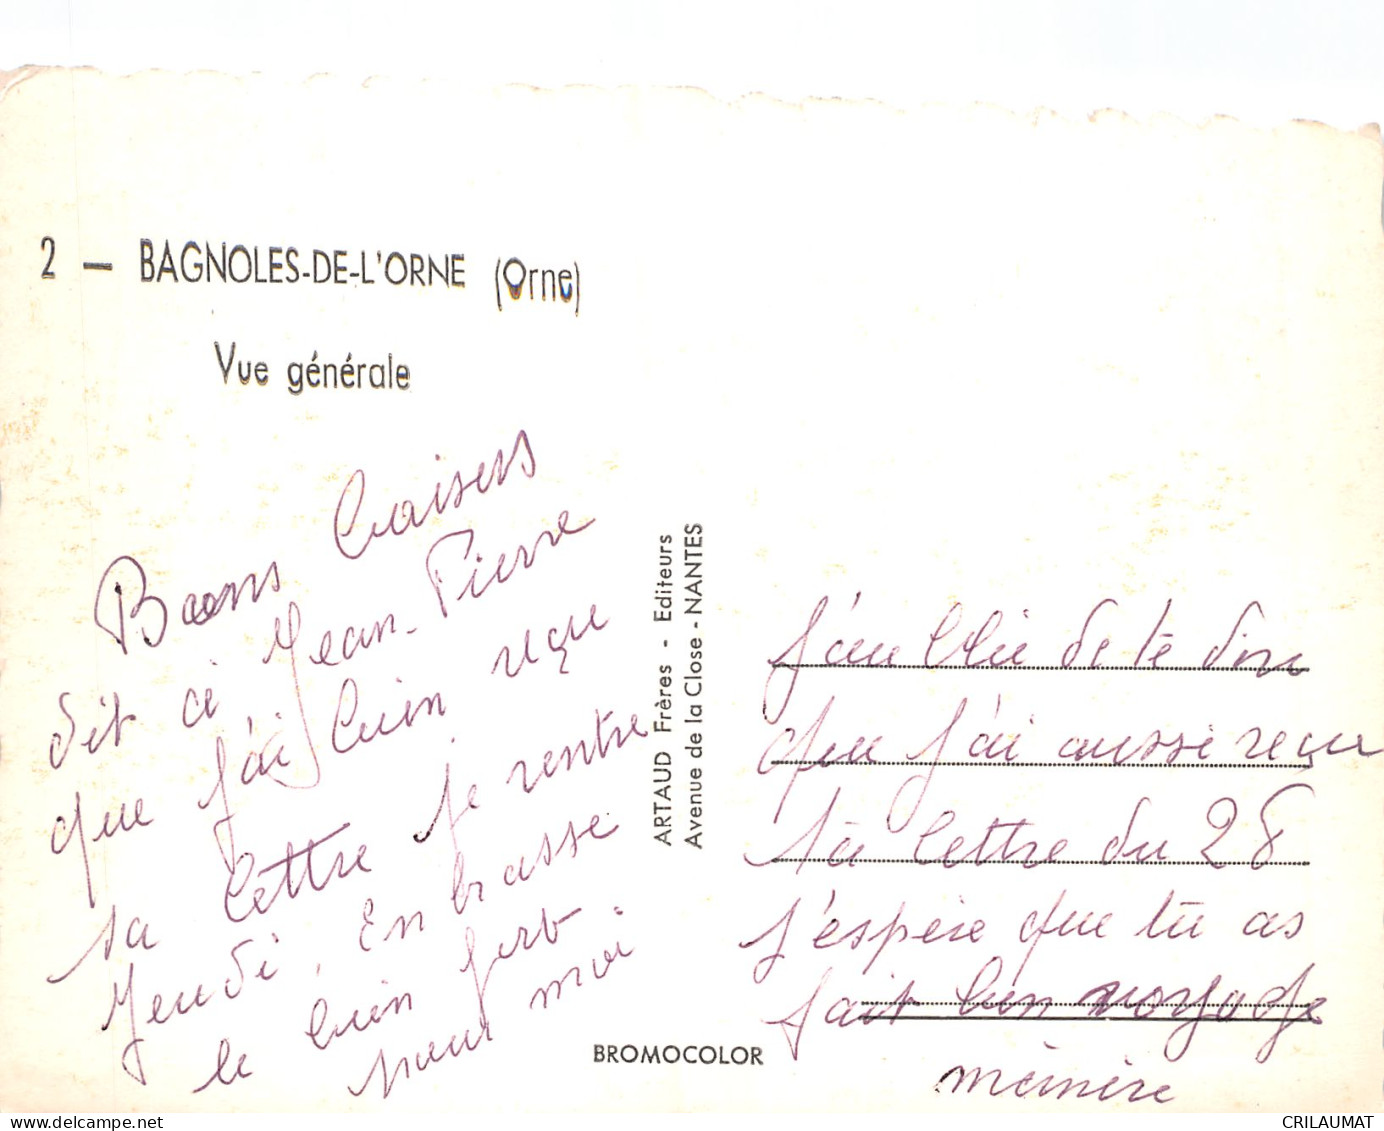 2 — BAGNOLES-DE-L'ORNE (Orne)
Vue générale
Bons baisers
dit ci Jean-Pierre
que j'ai bien reçu
sa lettre je rentre
Jeudi, Embrasse
le bien fort
pour moi
ARTAUD Frères - Editeurs
Avenue de la Close - NANTES
BROMOCOLOR
j'oublie de te dire
que j'ai aussi reçu
ta lettre du 28
j'espère que tu as
fait bon voyage
mémère
CRILAUMAT